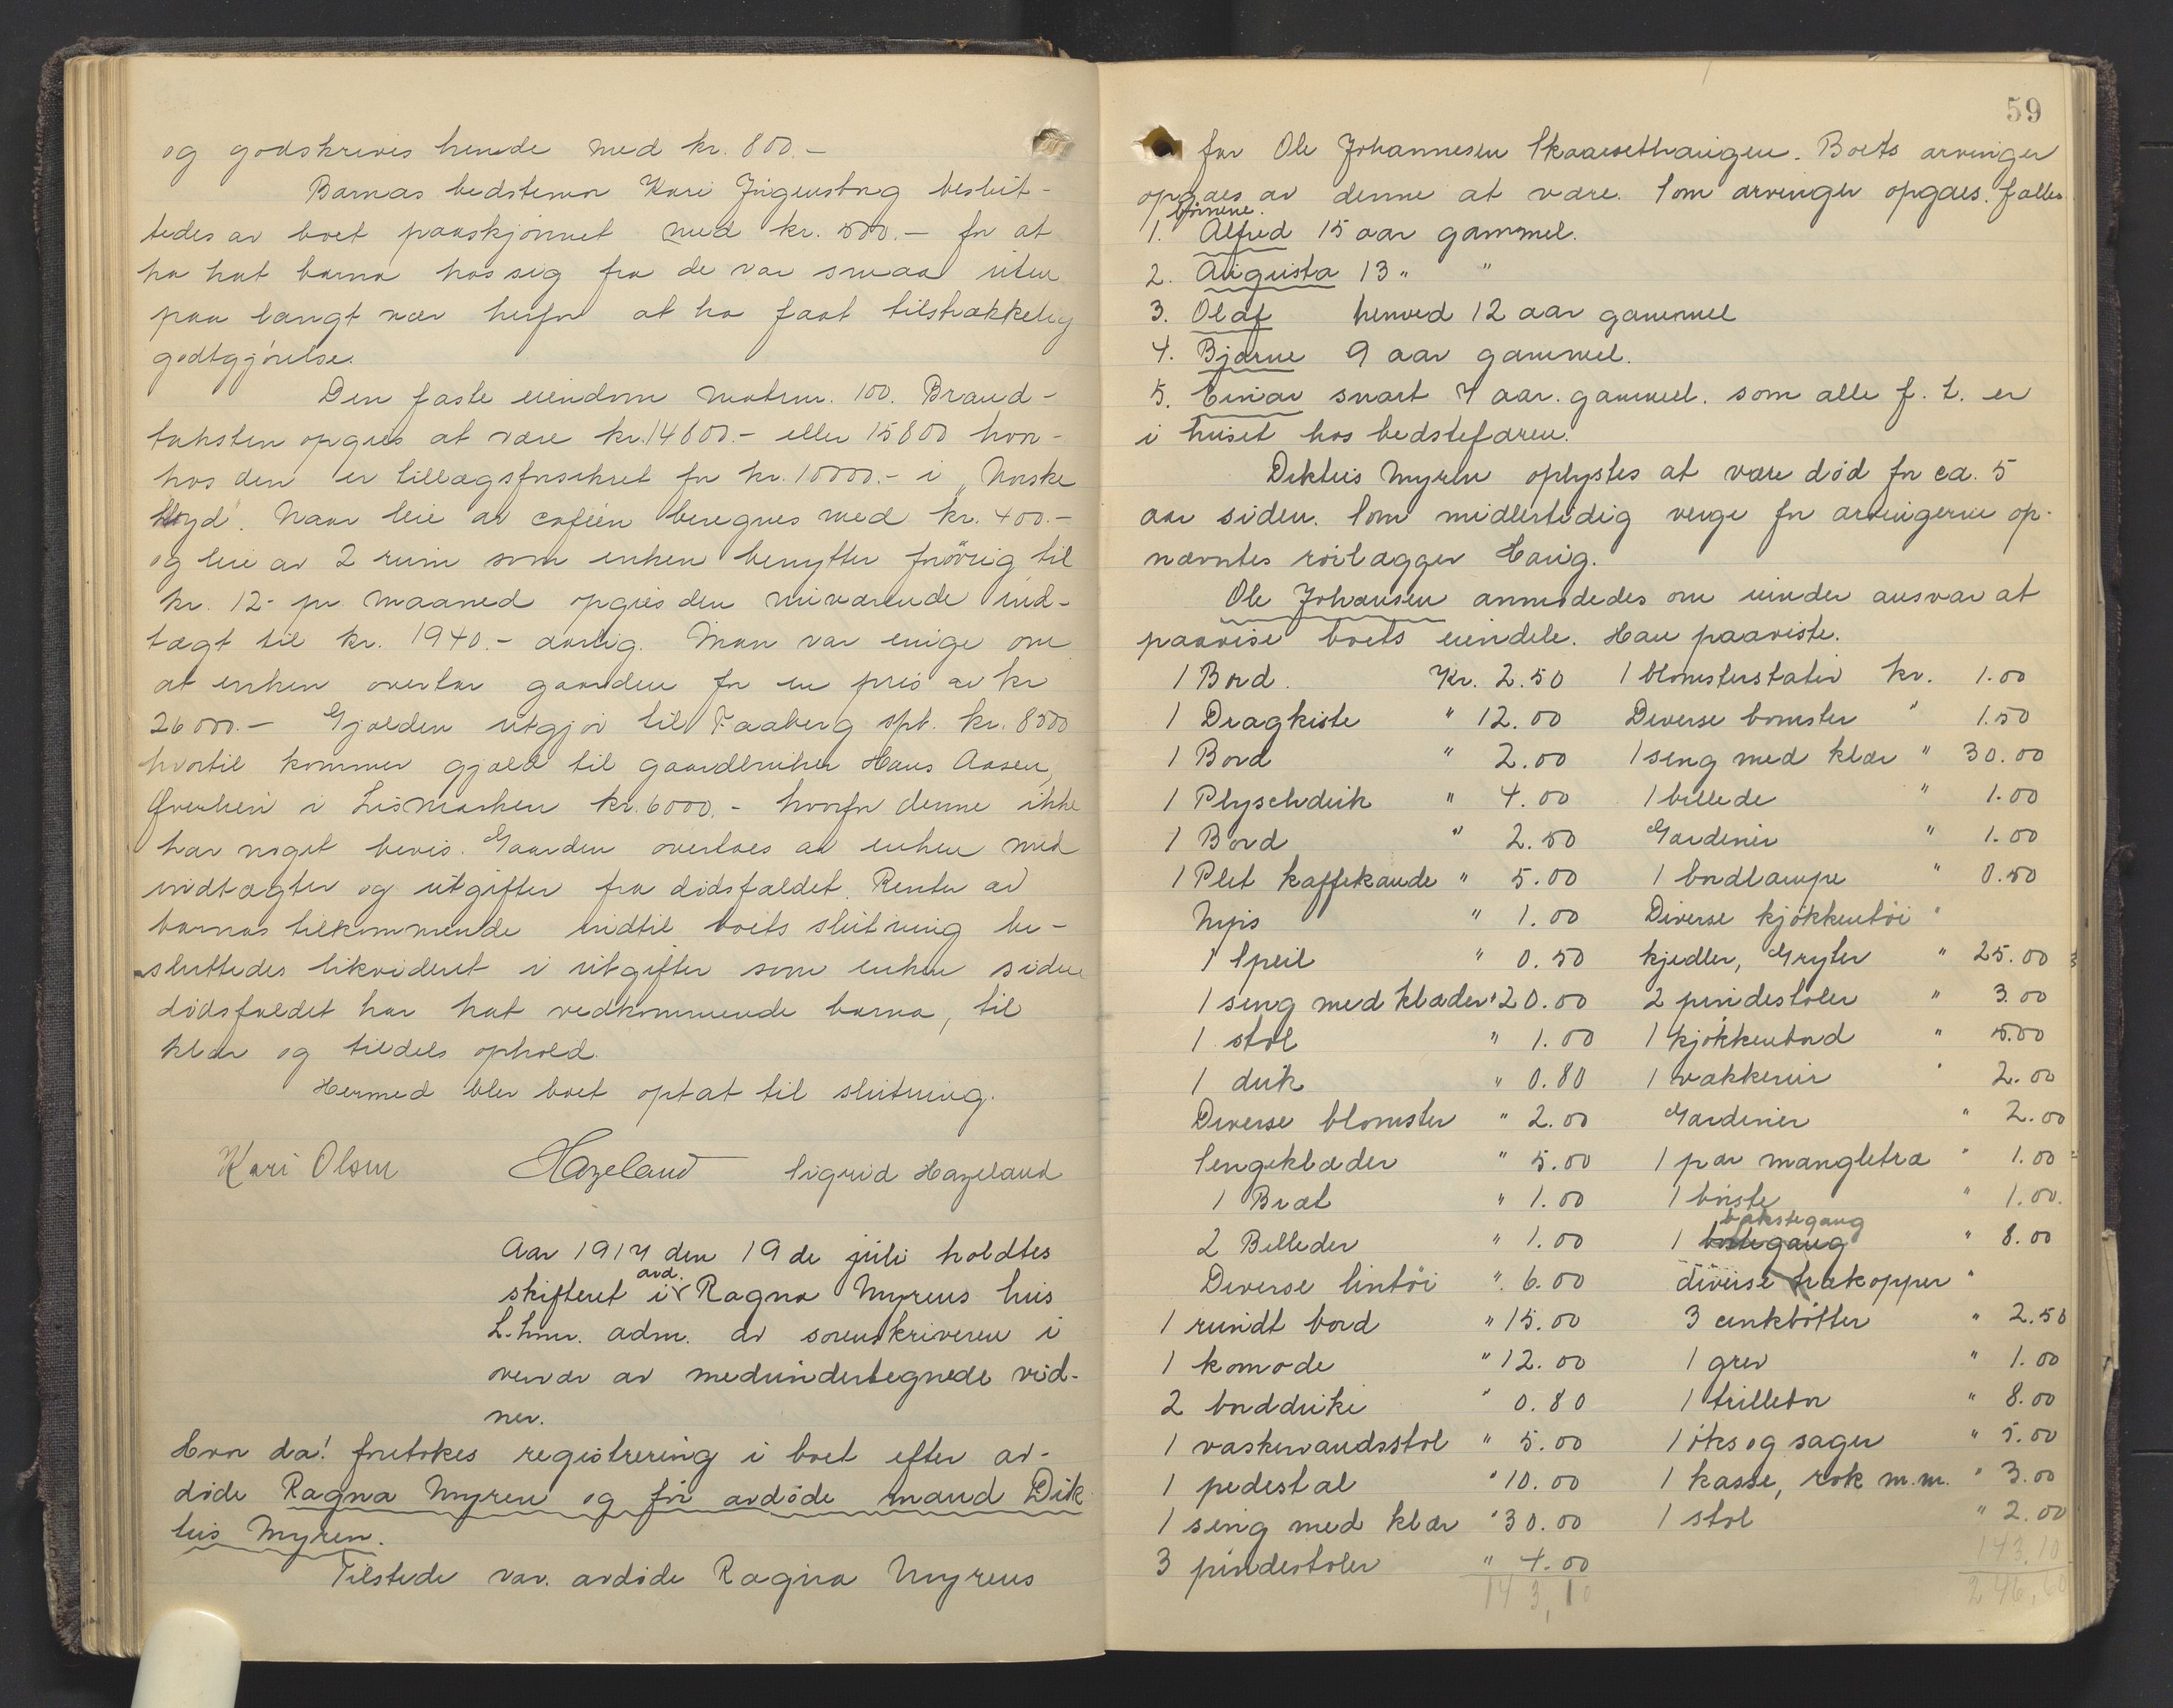 og godskrives hende med kr. 800.-
Barnas bedstemor Kari Ingeustrug beslut-
tedes av boet paaskjønnet med kr. 500.- for at
ha hat barna hos sig fra de var smaa uten
paa langt nær herfor at ha faat tilstrækkelig
godtgjørelse.
Den faste eiendom matrnr. 100. Brand-
taksten opgies at være kr. 14800.- eller 15800 hvor-
hos den er tillægsforsikret for kr. 10000.- i „Norske
Lloyd". Naar leie av caféen beregnes med kr. 400.-
og leie av 2 rum som enken benytter forøvrig til
kr. 12- pr. maaned opgies den nuværende ind-
tægt til kr. 1940.- aarlig. Man var enige om
at enken overtar gaarden for en pris av kr
26000.- Gjælden utgjør til Faaberg spb. kr. 8500
hvortil kommer gjæld til gaardbruker Hans Aasen,
Øverlien i Lismarken kr. 6000.- hvorfor denne ikke
har noget bevis. Gaarden overtaes av enken med
indtægter og utgifter fra dødsfaldet. Renter av
barnas tilkommende indtil boets slutning be-
sluttedes likvideret i utgifter som enken siden
dødsfaldet har hat vedkommende barna, til
klær og tildels ophold.
Hermed blev boet optat til slutning.
Kari Olsen Hazeland Sigrid Hazeland
Aar 1917 den 19 de juli holdtes
skifteret i avd. Ragna Myrens hus
L.hmr. adm. av sorenskriveren i
overvær av medundertegnede vid-
ner.
Hvor da! foretokes registrering i boet efter av-
døde Ragna Myren og før avdøde mand Dik
tus Myren.
Tilstede var. avdøde Ragna Myrens
59
far Ole Johannesen Skaarsethaugen. Boets arvinger
opgaes av denne at være. Som arvinger opgaes. fælles
børnene.
1. Alfred 15 aar gammel.
2. Augusta 13 " "
3. Olaf henved 12 aar gammel
4. Bjarne 9 aar gammel.
5. Einar snart 7 aar. gammel. som alle f. t. er
i huset hos bedstefaren.
Diktus Myren oplystes at være død for ca. 5
aar siden. Som midlertidig verge for arvingerne op-
nævntes rørlægger Haug.
Ole Johansen anmodedes om under ansvar at
paavise boets eiendele. Han paaviste.
1 Bord. Kr. 2.50 1 blomsterstativ kr. 1.00
1 Dragkiste " 12.00 Diverse bomster " 1.50
1 Bord " 2.00 1 seng med klær " 30.00
1 Plyschduk " 4.00 1 billede " 1.00
1 Bord " 2.50 Gardiner " 1.00
1 Plet kaffekande " 5.00 1 bordlampe " 0.50
Nips " 1.00 Diverse kjøkkentøi "
1 Speil " 0.50 kjedler, Gryter " 25.00
1 seng med klæder " 20.00 2 pindestoler " 3.00
1 stol " 1.00 1 kjøkkenbord " 5.00
1 duk " 0.80 1 vækkerur " 2.00
Diverse blomster " 2.00 Gardiner " 2.00
Sengeklæder " 5.00 1 par mangletræ " 1.00
1 Bræt " 1.00 1 børste " 1.00.
2 Billeder " 1.00 1 bakstegang " 8.00
Diverse lintøi " 6.00 diverse trækopper "
1 rundt bord " 15.00 3 cinkbøtter " 2.50
1 komode " 12.00 1 grev " 1.00
2 bordduke " 0.80 1 trillebør " 8.00
1 vaskevandsstol " 5.00 1 øks og sager " 5.00
1 pedestal " 10.00 1 kasse, rok m.m. " 3.00
1 seng med klær " 30.00 1 stol " 2.00
3 pindestoler " 4.00 143.10
143,10 246,60